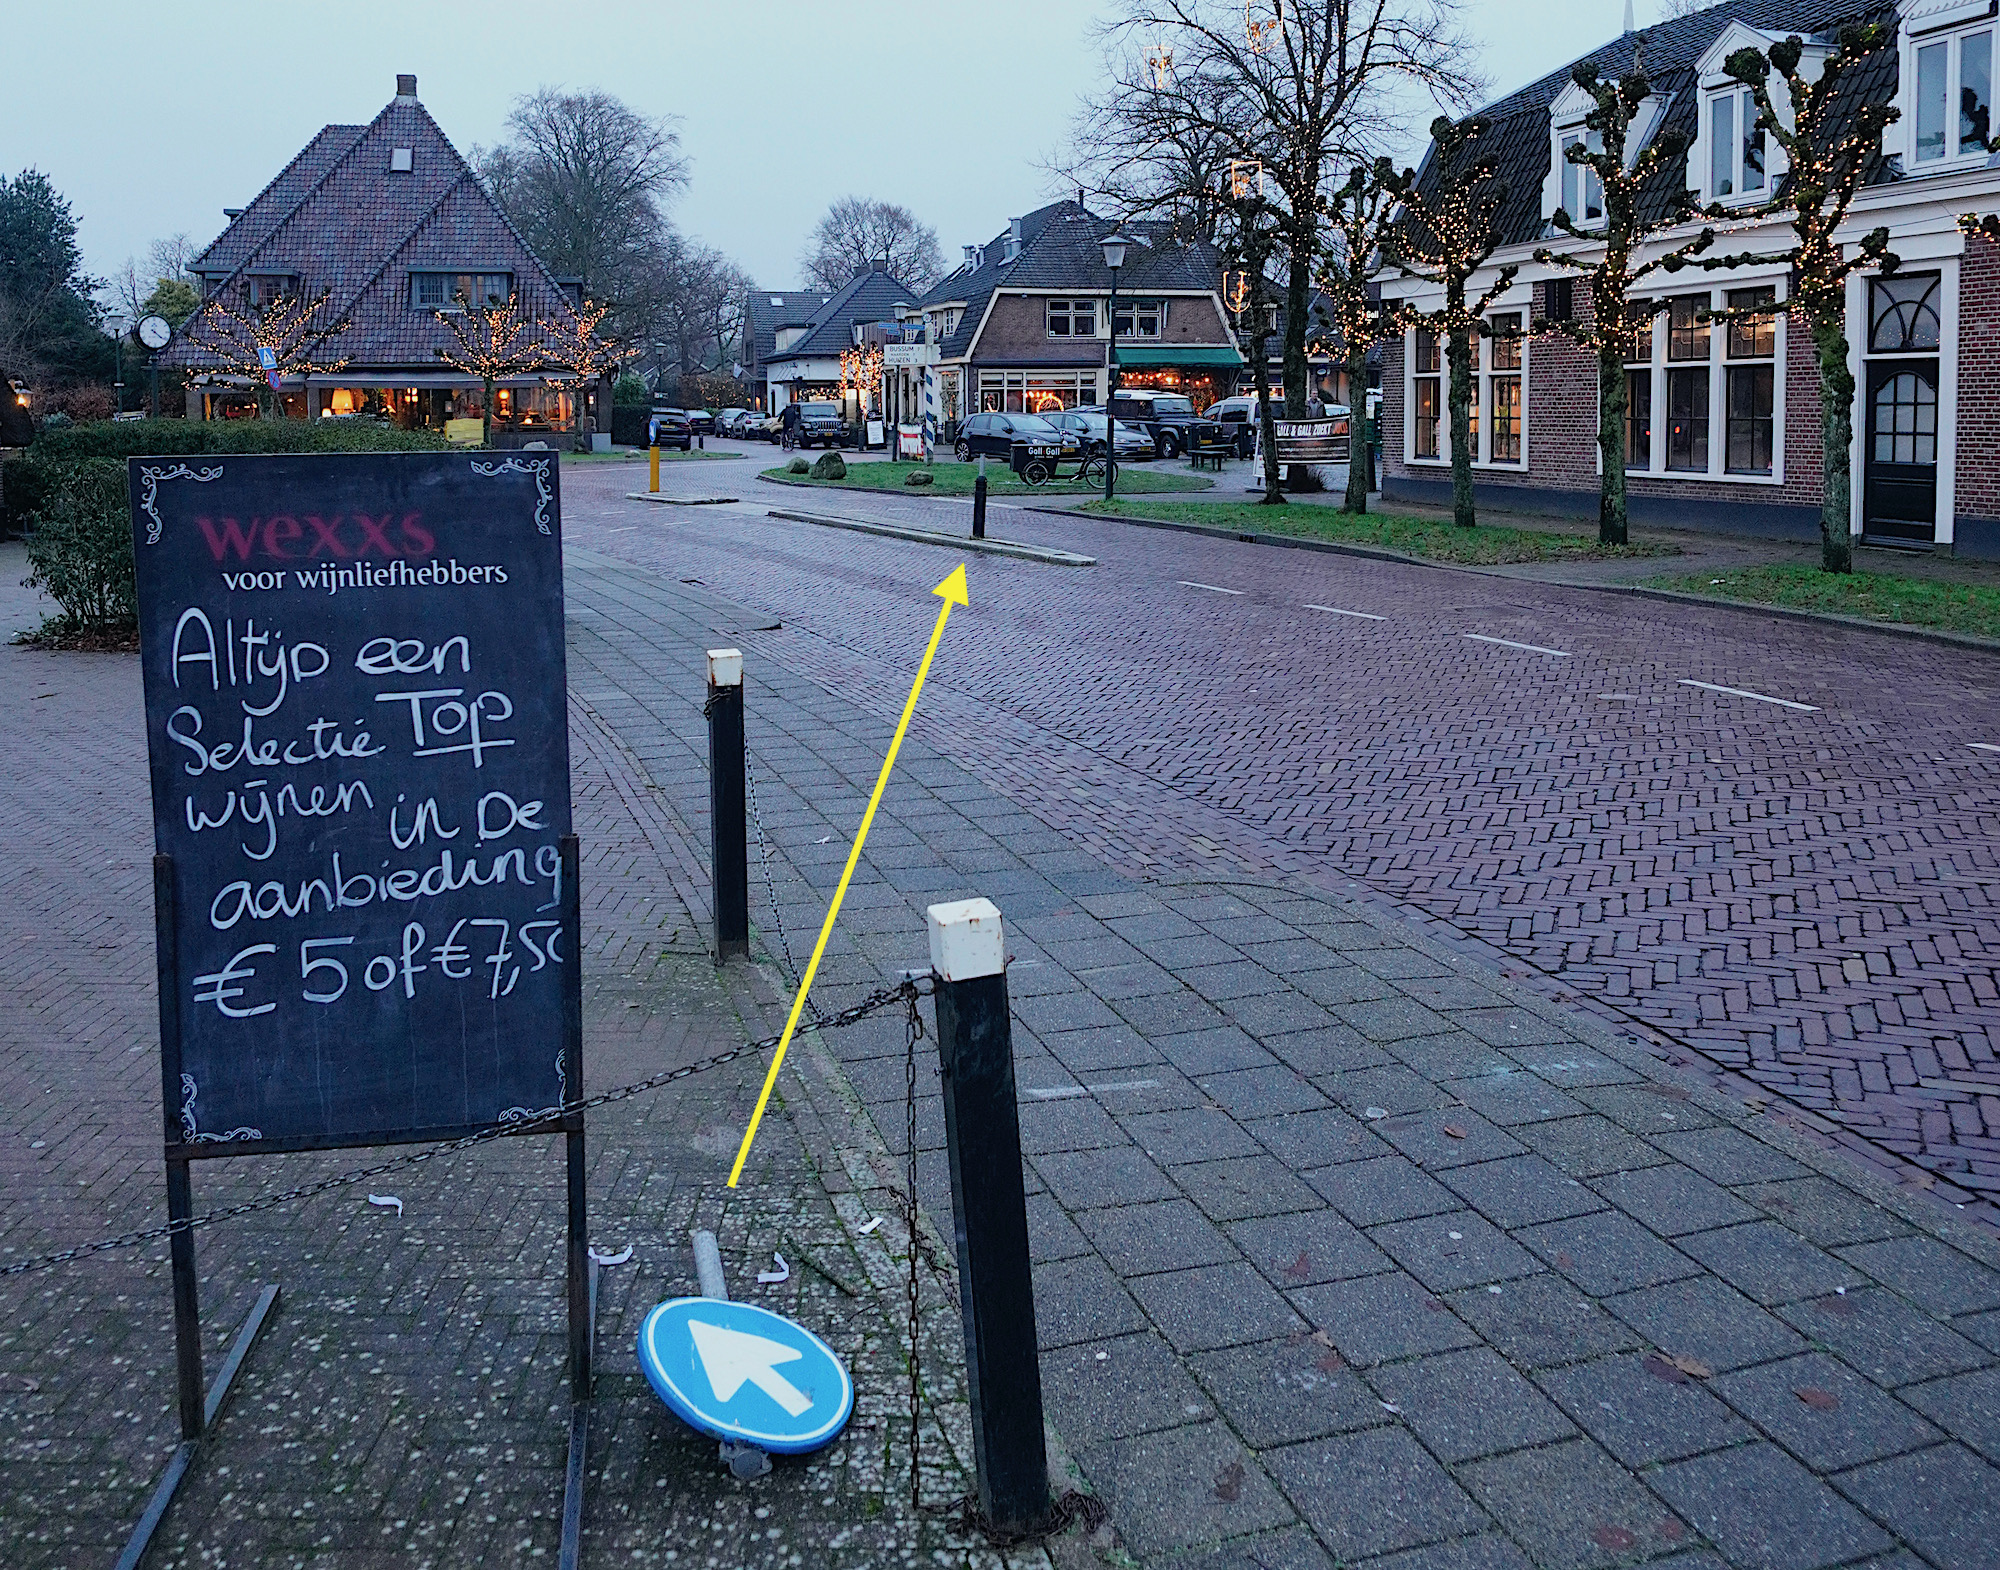 wexxs
voor wijnliefhebbers
Altijd een
Selectie Top
wijnen in De
aanbieding
€ 5 of € 7,50
BUSSUM 7
HUIZEN 3
Gall Gall
GALL & GALL ZOEKT JOU